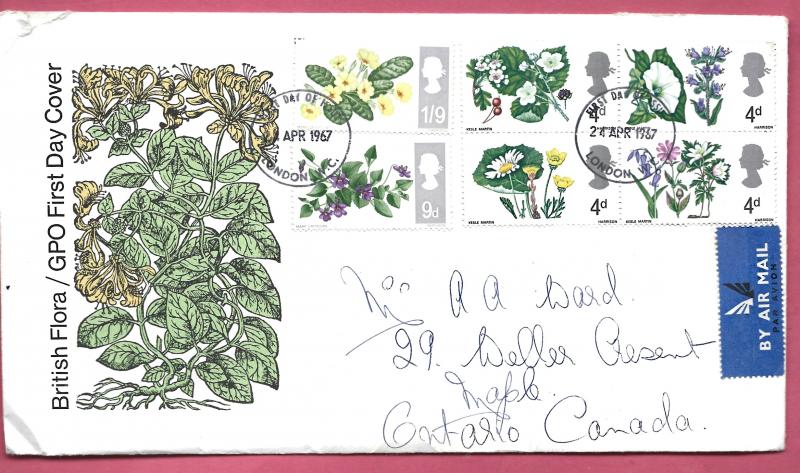 British Flora / GPO First Day Cover
1/9
4d
HARRISON
4d
HARRISON
9d
4d
HARRISON
4d
HARRISON
FIRST DAY OF ISSUE
APR 1967
LONDON W.C.
FIRST DAY OF ISSUE
24 APR 1967
LONDON W.C.
BY AIR MAIL
PAR AVION
A A Ward.
29. Weller Cresent
Maple.
Ontario Canada.